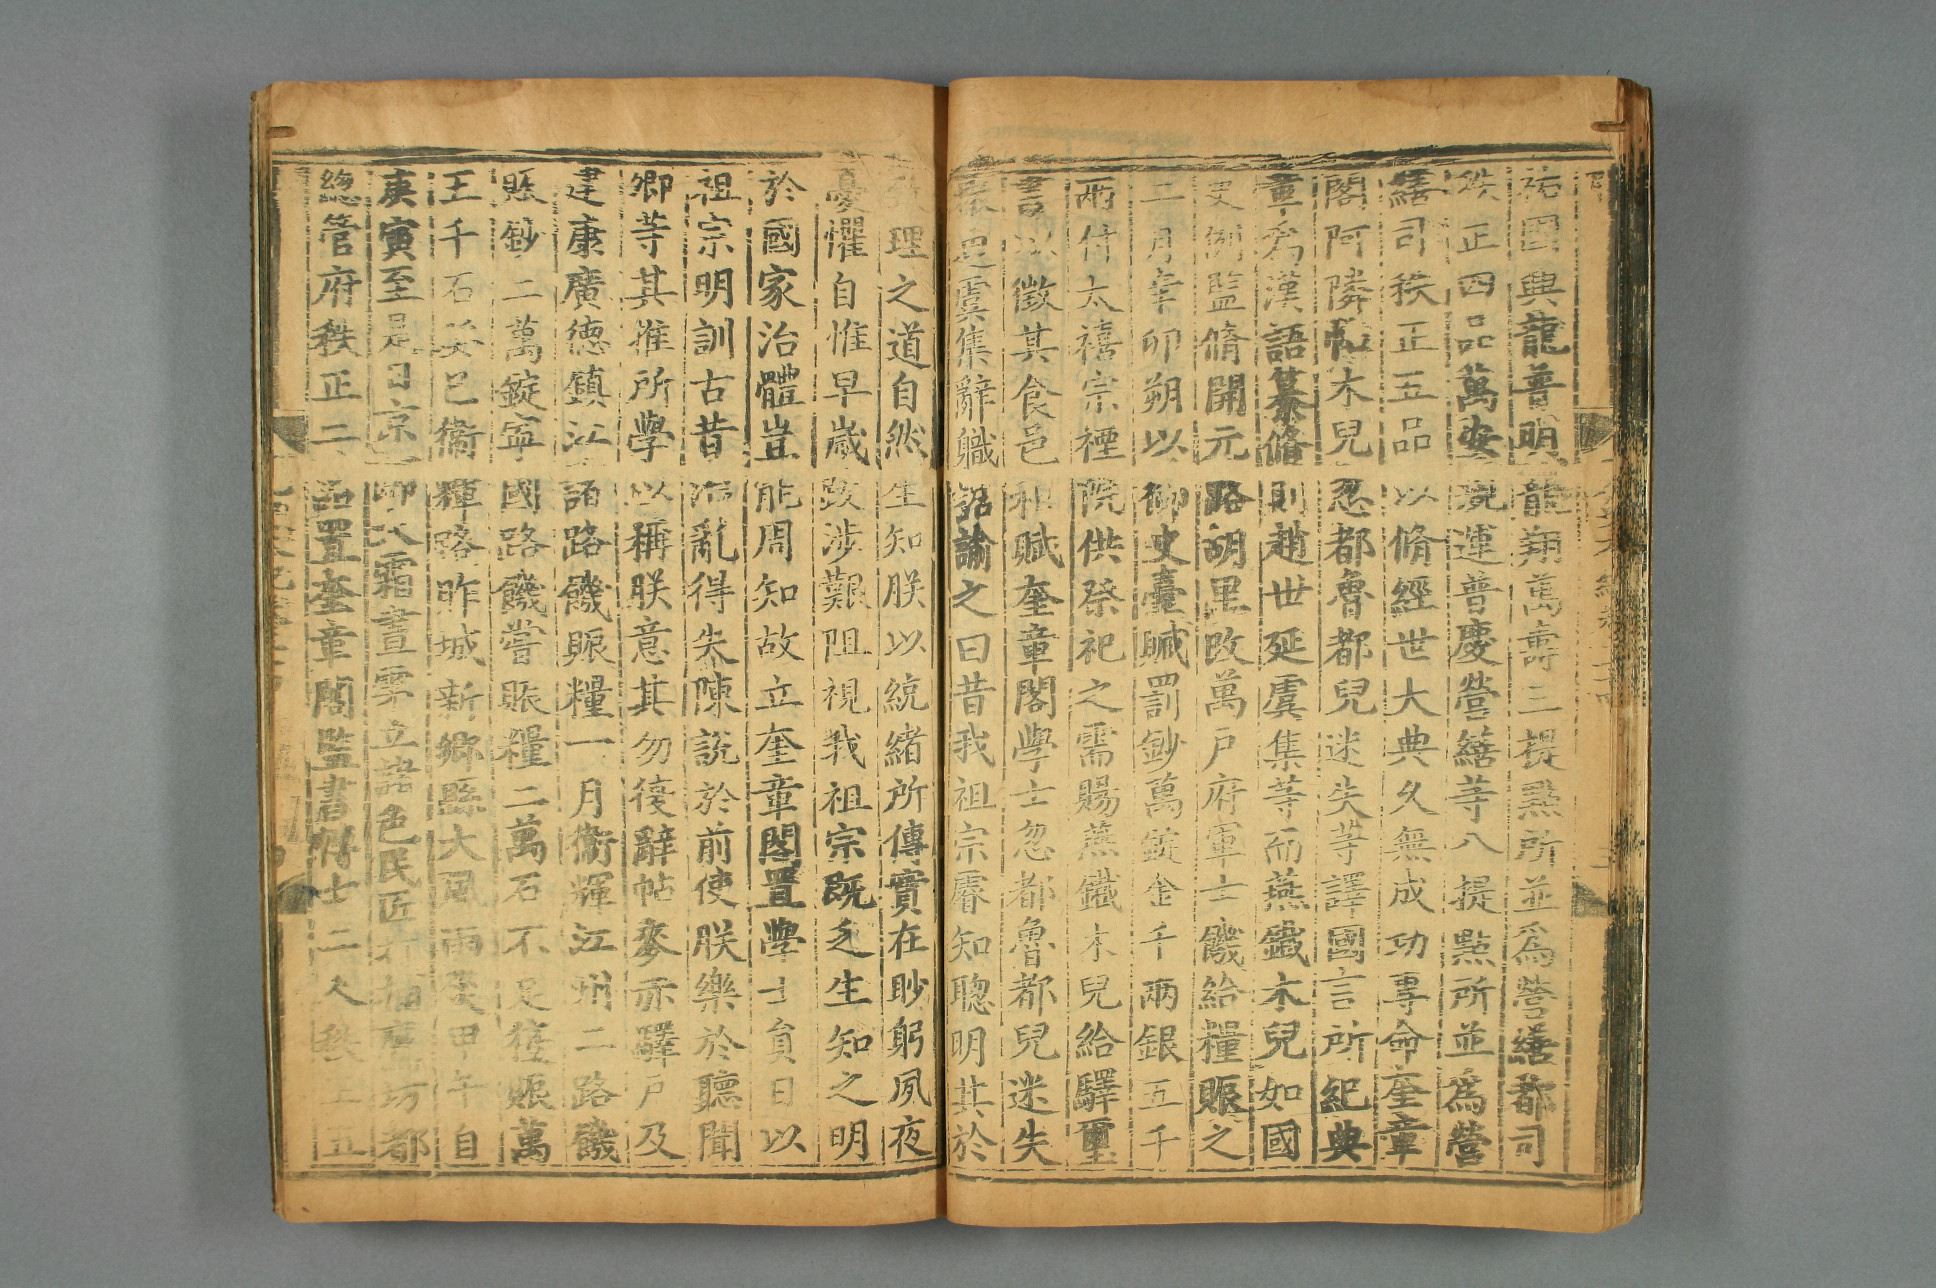 祐國興龍普明龍翔萬壽三提點所並爲營繕都司
秩正四品萬安規運普慶營繕等八提點所並爲營
繕司秩正五品以脩經世大典久無成功專命奎章
閣阿隣帖木兒忽都魯都兒迷失等譯國言所紀典
章爲漢語纂脩則趙世延虞集等而燕鐵木兒如國
史例監脩開元路胡里改萬戶府軍士饑給糧賑之
二月辛卯朔以御史臺贓罰鈔萬錠金千兩銀五千
兩付太禧宗禋院供祭祀之需賜燕鐵木兒給驛璽
書以徵其食邑租賦奎章閣學士忽都魯都兒迷失
虞集辭職詔諭之曰昔我祖宗睿知聰明其於
致理之道自然生知朕以統緒所傳實在眇躬夙夜
憂懼自惟早歲跋涉艱阻視我祖宗既乏生知之明
於國家治體豈能周知故立奎章閣置學士員日以
祖宗明訓古昔治亂得失陳說於前使朕樂於聽聞
卿等其推所學以稱朕意其勿復辭帖麥赤驛戶及
建康廣德鎮江諸路饑賑糧一月衞輝江州二路饑
賑鈔二萬錠寧國路饑嘗賑糧二萬石不足復賑萬
王千石癸巳衞輝路胙城新鄉縣大風雨災甲午自
庚寅至是日京師大霜晝霧立諸色民匠打捕鷹坊都
總管府秩正二品置奎章閣監書博士二人秩正五